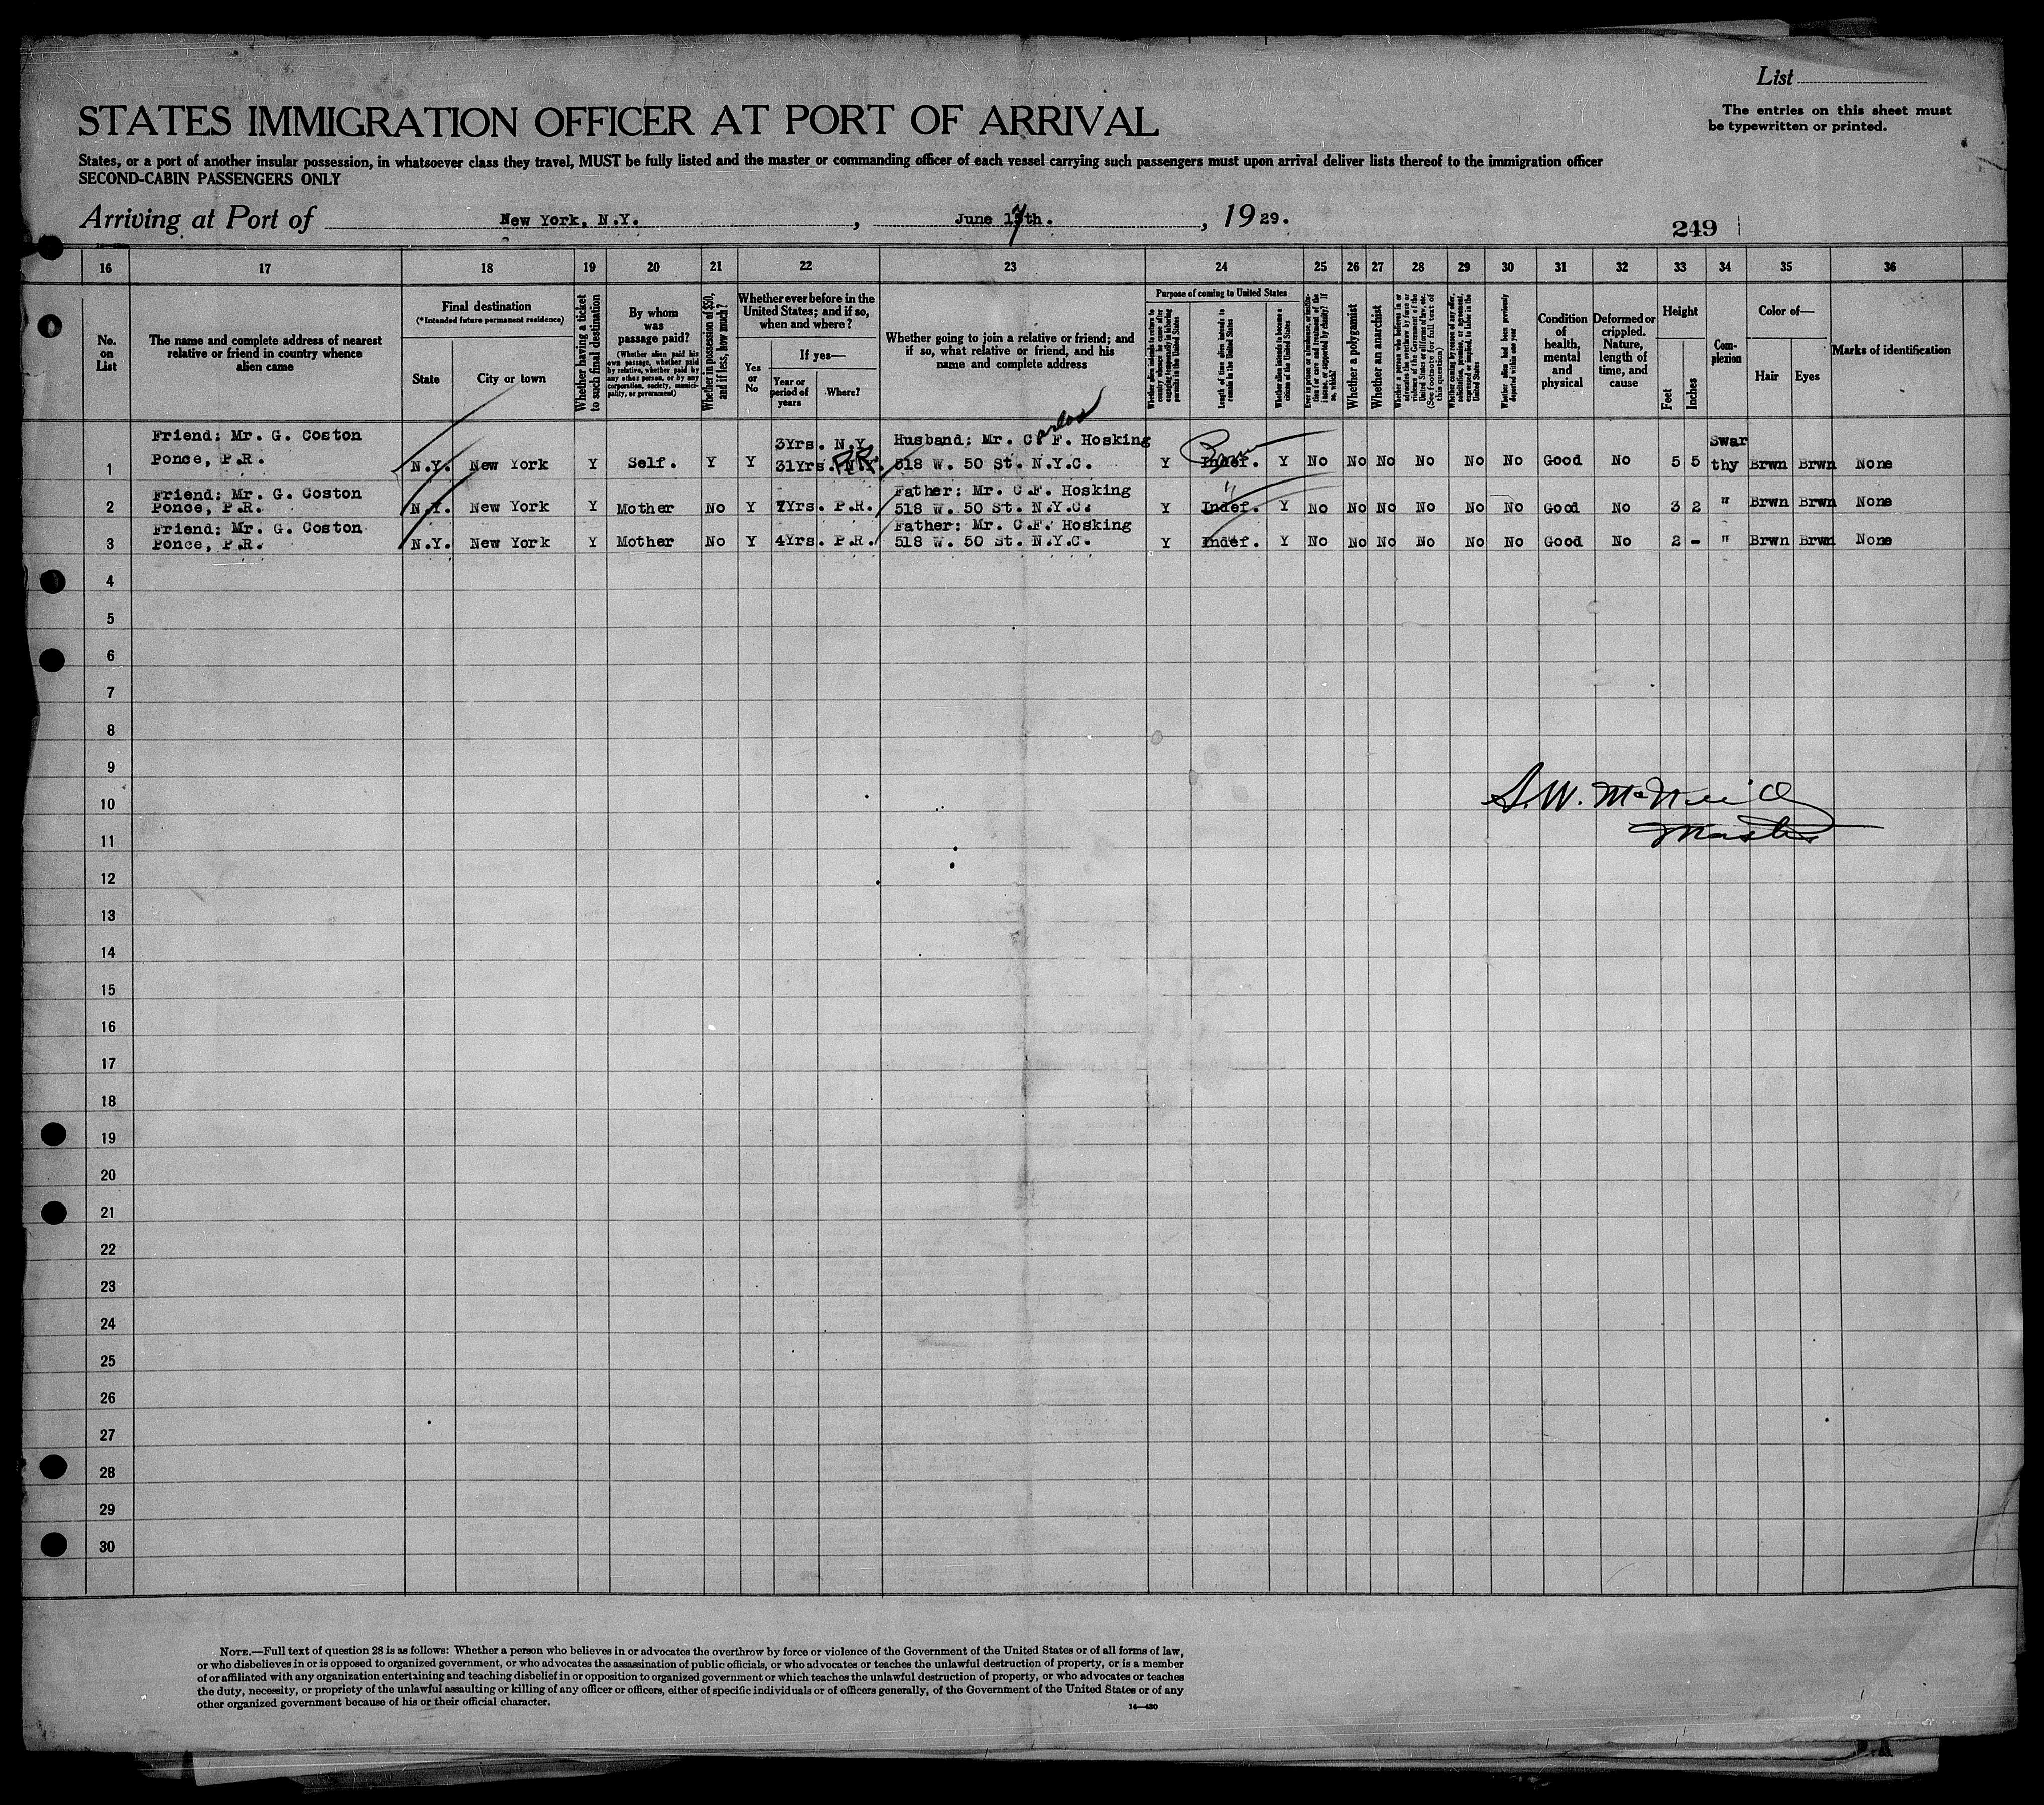 List
The entries on this sheet must
be typewritten or printed.
STATES IMMIGRATION OFFICER AT PORT OF ARRIVAL
States, or a port of another insular possession, in whatsoever class they travel, MUST be fully listed and the master or commanding officer of each vessel carrying such passengers must upon arrival deliver lists thereof to the immigration officer
SECOND-CABIN PASSENGERS ONLY
Arriving at Port of New York, N.Y., June 17th., 1929.
249
16 17 18 19 20 21 22 23 24 25 26 27 28 29 30 31 32 33 34 35 36
No. on List
The name and complete address of nearest relative or friend in country whence alien came
Final destination
(*Intended future permanent residence)
State
City or town
Whether having a ticket to such final destination
By whom was passage paid?
(Whether alien paid his own passage, whether paid by relative, whether paid by any other person, or by any corporation, society, municipality, or government)
Whether in possession of $50, and if less, how much?
Whether ever before in the United States; and if so, when and where?
Yes or No
If yes—
Year or period of years
Where?
Whether going to join a relative or friend; and if so, what relative or friend, and his name and complete address
Purpose of coming to United States
Whether alien intends to return to country whence he came after engaging temporarily in laboring pursuits in the United States
Length of time alien intends to remain in the United States
Whether alien intends to become a citizen of the United States
Whether a polygamist
Whether an anarchist
Whether a person who believes in or advocates the overthrow by force or violence of the Government of the United States or all forms of law, etc. (See footnote for full text of this question)
Whether coming by reason of any offer, solicitation, promise, or agreement, expressed or implied, to labor in the United States
Whether alien had been previously deported within one year
Condition of health, mental and physical
Deformed or crippled. Nature, length of time, and cause
Height
Feet
Inches
Complexion
Color of—
Hair
Eyes
Marks of identification
1 Friend: Mr. G. Coston Ponce, P.R. N.Y. New York Y Self. Y Y 3Yrs. N.Y. 31Yrs. P.R. Husband: Mr. Carlos F. Hosking 518 W. 50 St. N.Y.C. Y Indef. Y No No No No No No Good No 5 5 Swarthy Brwn Brwn None
2 Friend: Mr. G. Coston Ponce, P.R. N.Y. New York Y Mother No Y 7Yrs. P.R. Father: Mr. C.F. Hosking 518 W. 50 St. N.Y.C. Y Indef. Y No No No No No No Good No 3 2 " Brwn Brwn None
3 Friend: Mr. G. Coston Ponce, P.R. N.Y. New York Y Mother No Y 4Yrs. P.R. Father: Mr. C.F. Hosking 518 W. 50 St. N.Y.C. Y Indef. Y No No No No No No Good No 2 - " Brwn Brwn None
4
5
6
7
8
9
10
S.W. McNeill
Master
11
12
13
14
15
16
17
18
19
20
21
22
23
24
25
26
27
28
29
30
NOTE.—Full text of question 28 is as follows: Whether a person who believes in or advocates the overthrow by force or violence of the Government of the United States or of all forms of law,
or who disbelieves in or is opposed to organized government, or who advocates the assassination of public officials, or who advocates or teaches the unlawful destruction of property, or is a member
of or affiliated with any organization entertaining and teaching disbelief in or opposition to organized government or which teaches the unlawful destruction of property, or who advocates or teaches
the duty, necessity, or propriety of the unlawful assaulting or killing of any officer or officers, either of specific individuals or of officers generally, of the Government of the United States or of any
other organized government because of his or their official character.
14—430